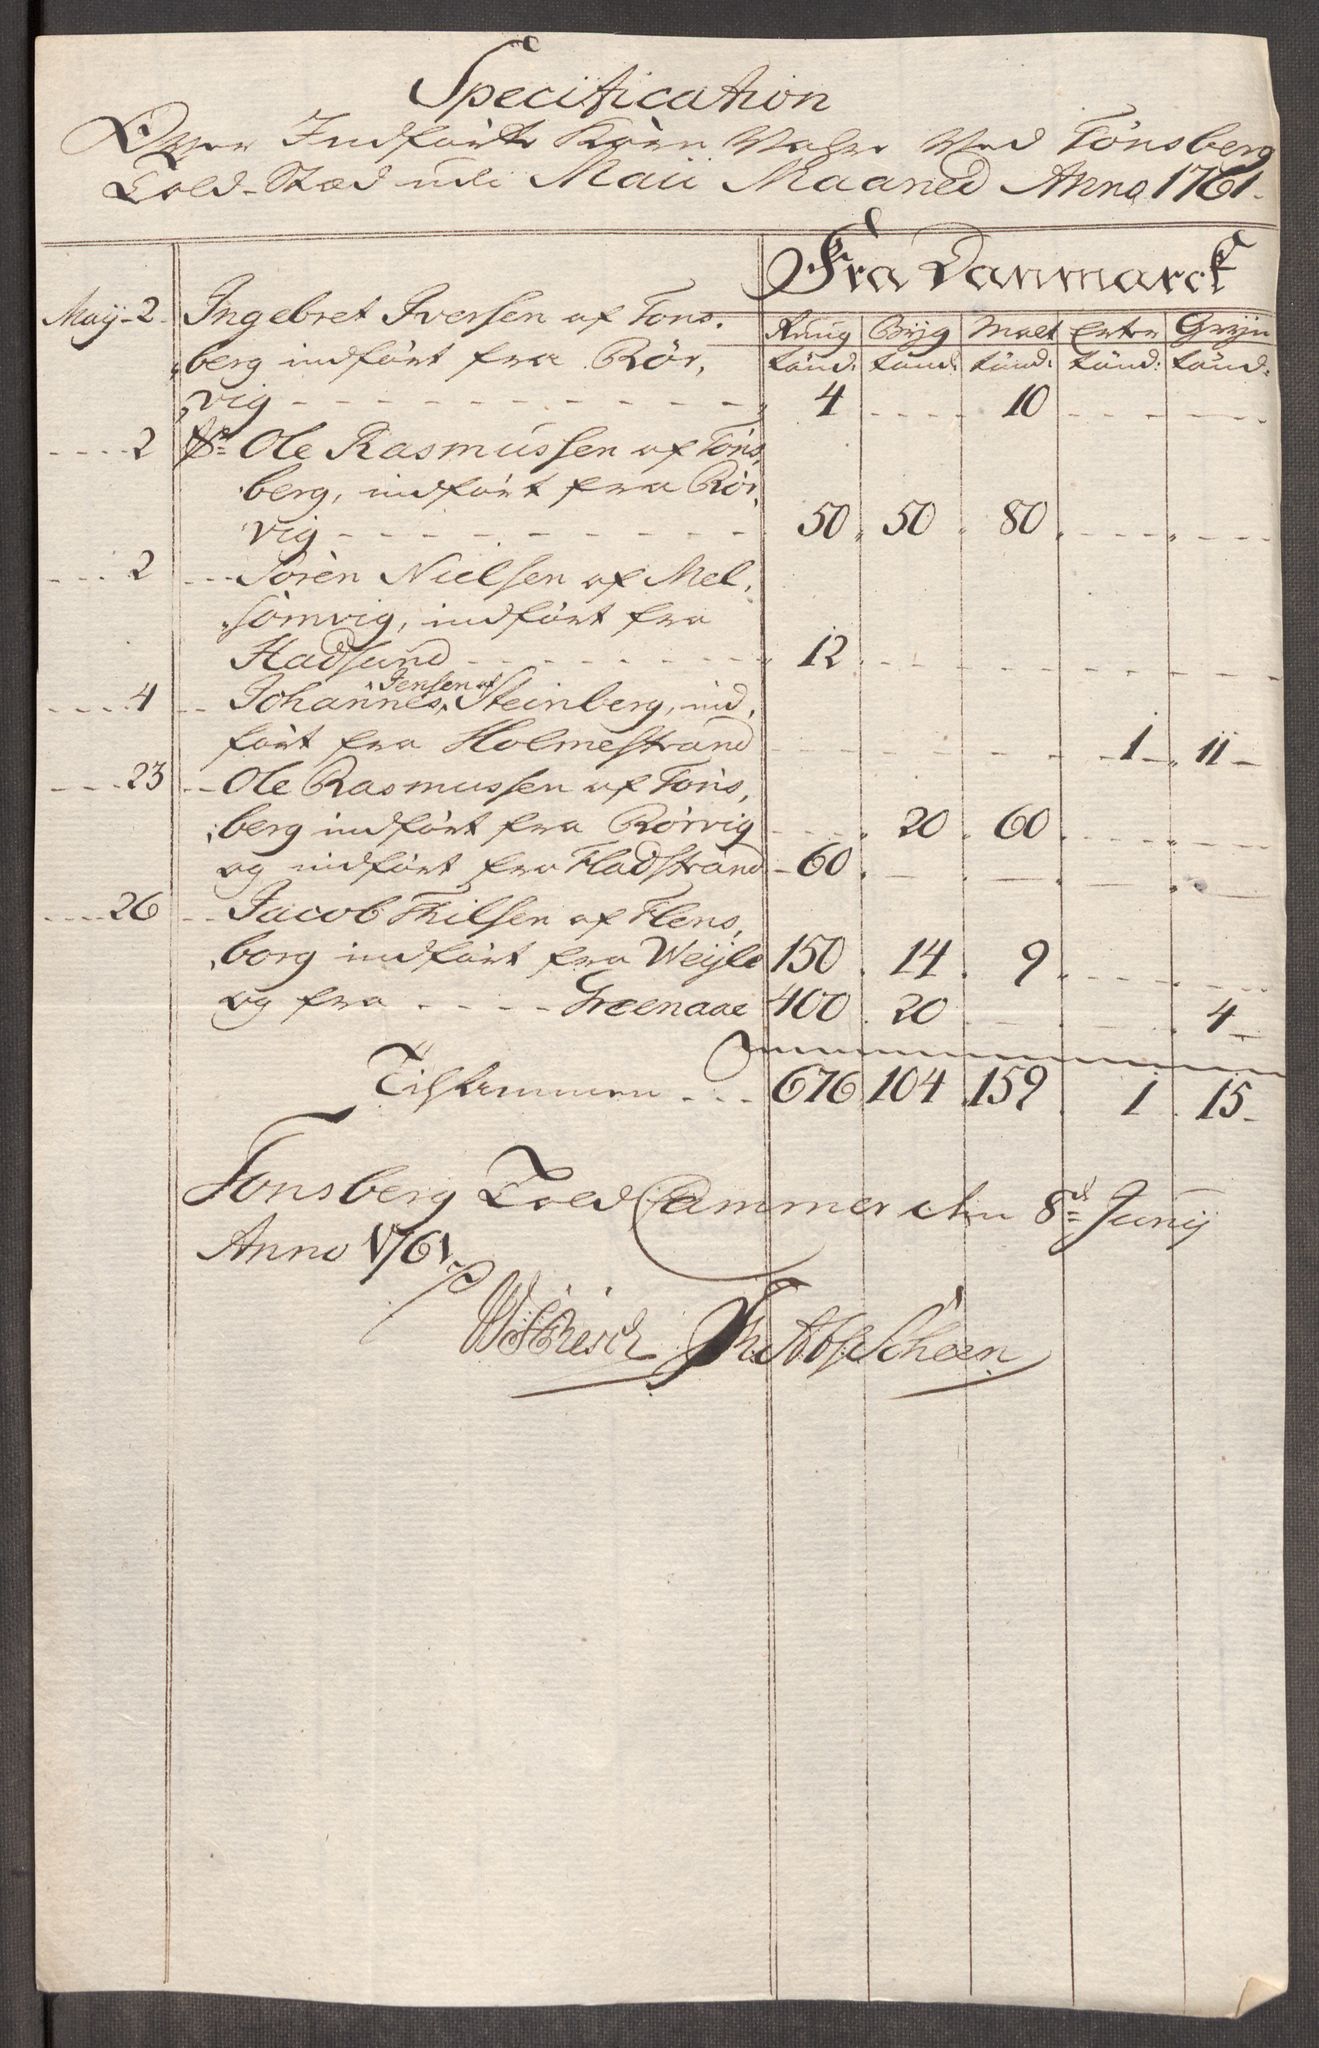 Specification
Over Indførte Korn Vahre Ved Tønsberg
Told-Stæd udi Maii Maaned Anno 1761.
Fra Danmarck
Ruug Byg Malt Erter Gryn
tønd: tønd: tønd: tønd: tønd:
Maij 2. Ingebret Iversen af Tøns,
berg indført fra Rør,
vig 4 10
2 Sr Ole Rasmussen af Tøns,
berg, indført fra Rør,
vig 50 50 80
2 Søren Nielsen af Mel,
sømvig, indført fra
Hadsund 12
4 Johannes Jensen af Steinberg, ind,
ført fra Holmestrand 1 11
23 Ole Rasmussen af Tøns,
berg indført fra Rørvig 20 60
og indført fra Fladstrand 60
26 Jacob Thilsen af Flens,
borg indført fra Weijle 150 14 9
og fra Greenaae 400 20 4
Tilsammen 676 104 159 1 15
Tønsberg Told Cammer den 8de Junij
Anno 1761